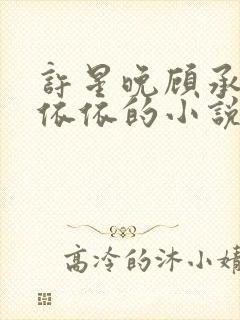 許星晚顾承
依依的小説
高冷的沐小婧